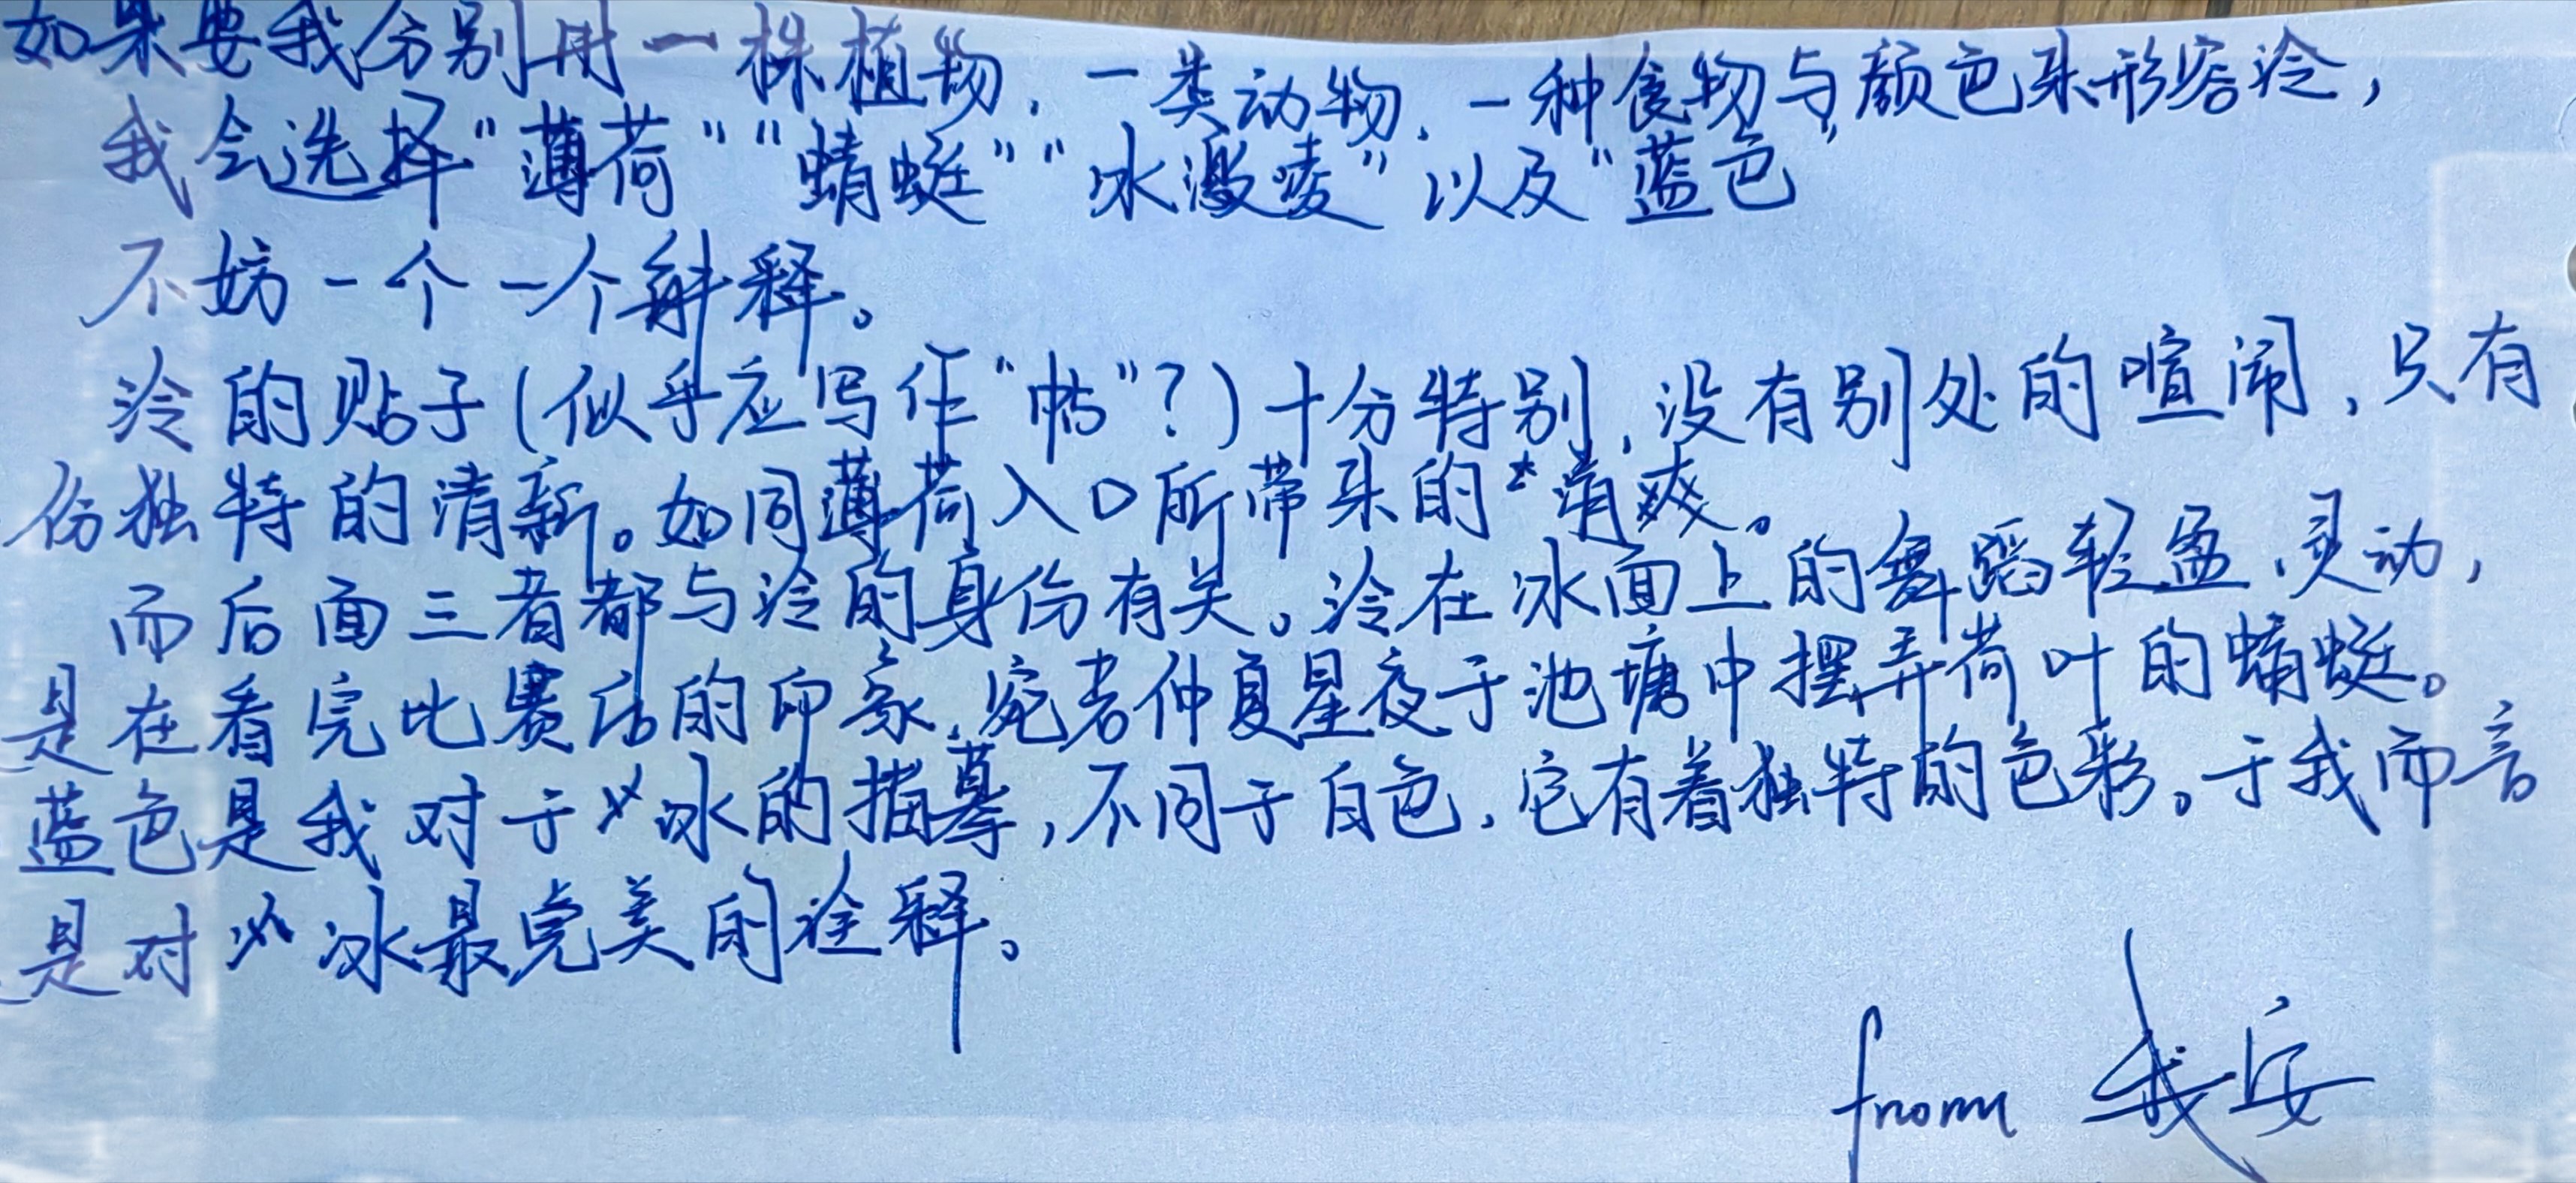 如果要我分别用一株植物、一类动物、一种食物与颜色来形容泠,
我会选择“薄荷”“蜻蜓”“冰激凌”以及“蓝色”
不妨一个一个解释。
泠的贴子(似乎应写作“帖”?)十分特别,没有别处的喧闹,只有
份独特的清新。如同薄荷入口所带来的清爽。
而后面三者都与泠的身份有关。泠在冰面上的舞蹈轻盈、灵动,
是在看完比赛后的印象,宛若仲夏星夜于池塘中摆弄荷叶的蜻蜓。
蓝色是我对于冰的描摹,不同于白色,它有着独特的色彩。于我而言
是对冰最完美的诠释。
from